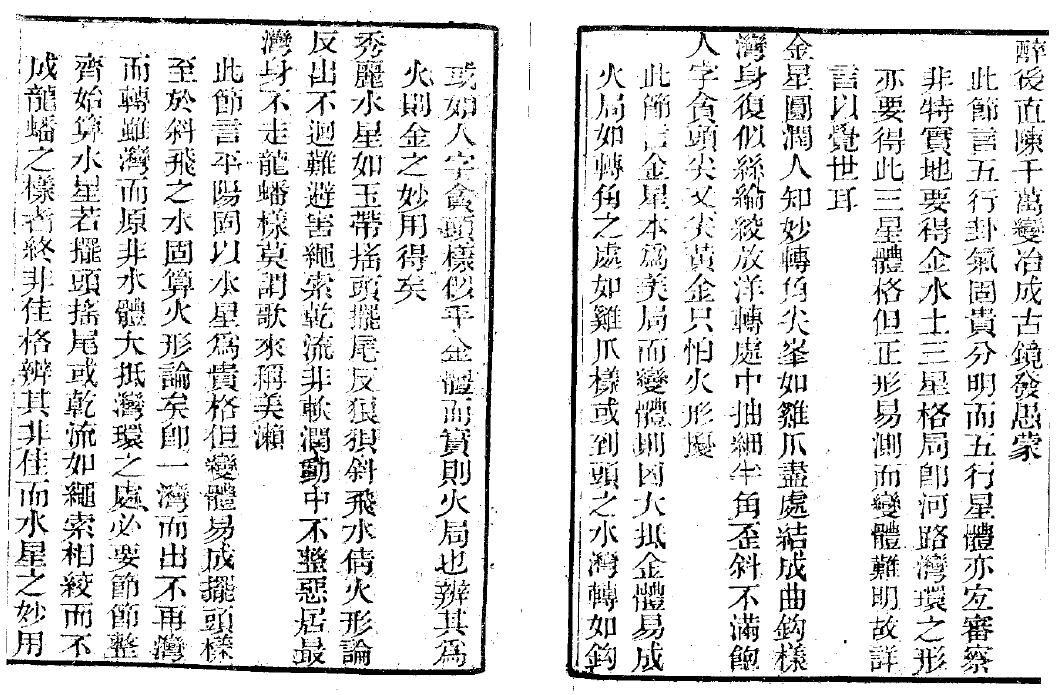 醉後直陳千萬變冶成古鏡發愚蒙
此節言五行卦氣固貴分明而五行星體亦宜審察
非特實地要得金水土三星格局即河路灣環之形
亦要得此三星體格但正形易測而變體難明故詳
言以覺世耳
金星圓潤人知妙轉角尖峯如雞爪盡處結成曲鈎樣
灣身復似絲綸絞放洋轉處中抽細牛角歪斜不滿飽
人字貪頭尖又尖黃金只怕火形擾
此節言金星本為美局而變體則凶大抵金體易成
火局如轉角之處如雞爪樣或到頭之水灣轉如鈎
或如人字貪頭樣似乎金體而實則火局也辨其為
火則金之妙用得矣
秀麗水星如玉帶搖頭擺尾反狼狽斜飛水倩火形論
反出不迴難避害繩索乾流非軟潤動中不整惡居最
灣身不走龍蟠樣莫謂歌來稱美瀨
此節言平陽固以水星為貴格但變體易成擺頭樣
至於斜飛之水固算火形論矣即一灣而出不再灣
而轉雖灣而原非水體大抵灣環之處必要節節整
齊始算水星若擺頭搖尾或乾流如繩索相絞而不
成龍蟠之樣者終非佳格辨其非佳而水星之妙用